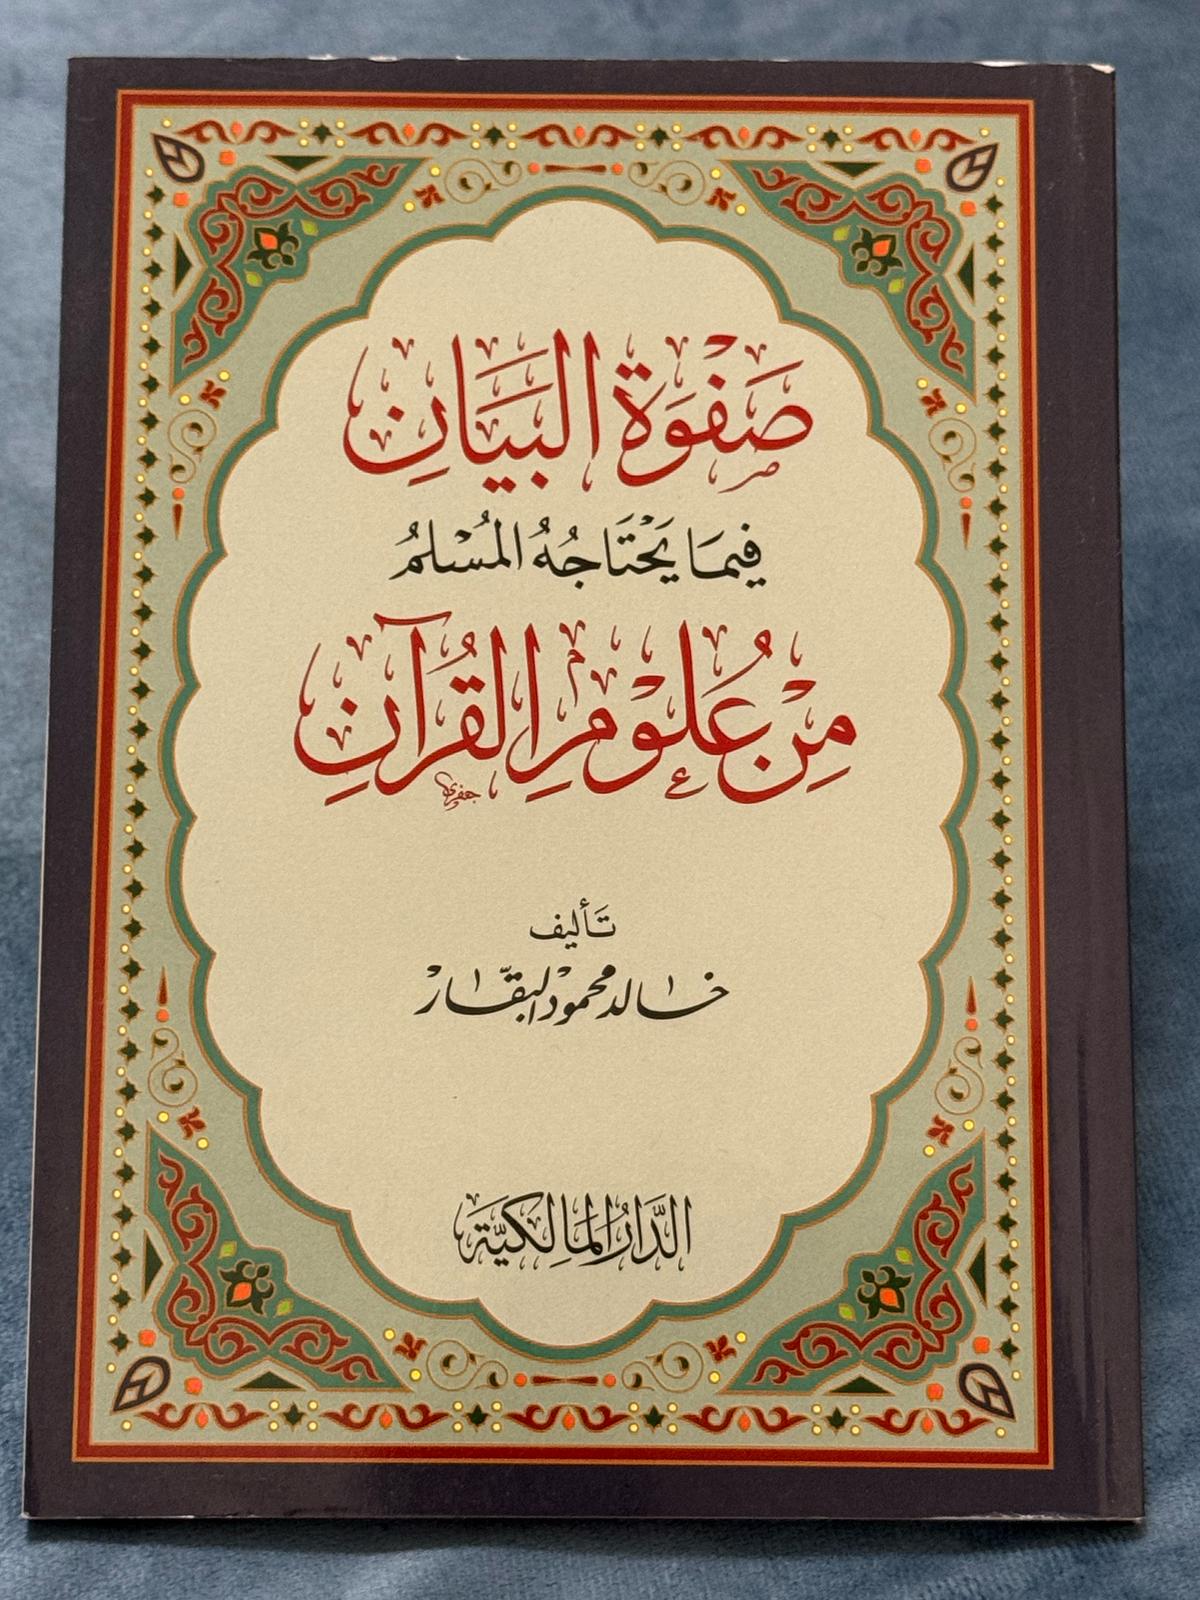 صَفْوَةُ البَيَانِ
فِيمَا يَحْتَاجُهُ المُسْلِمُ
مِنْ عُلُوْمِ القُرْآنِ
تَأليف
خالد محمود البقّار
الدَّارُ المَالِكِيَّة